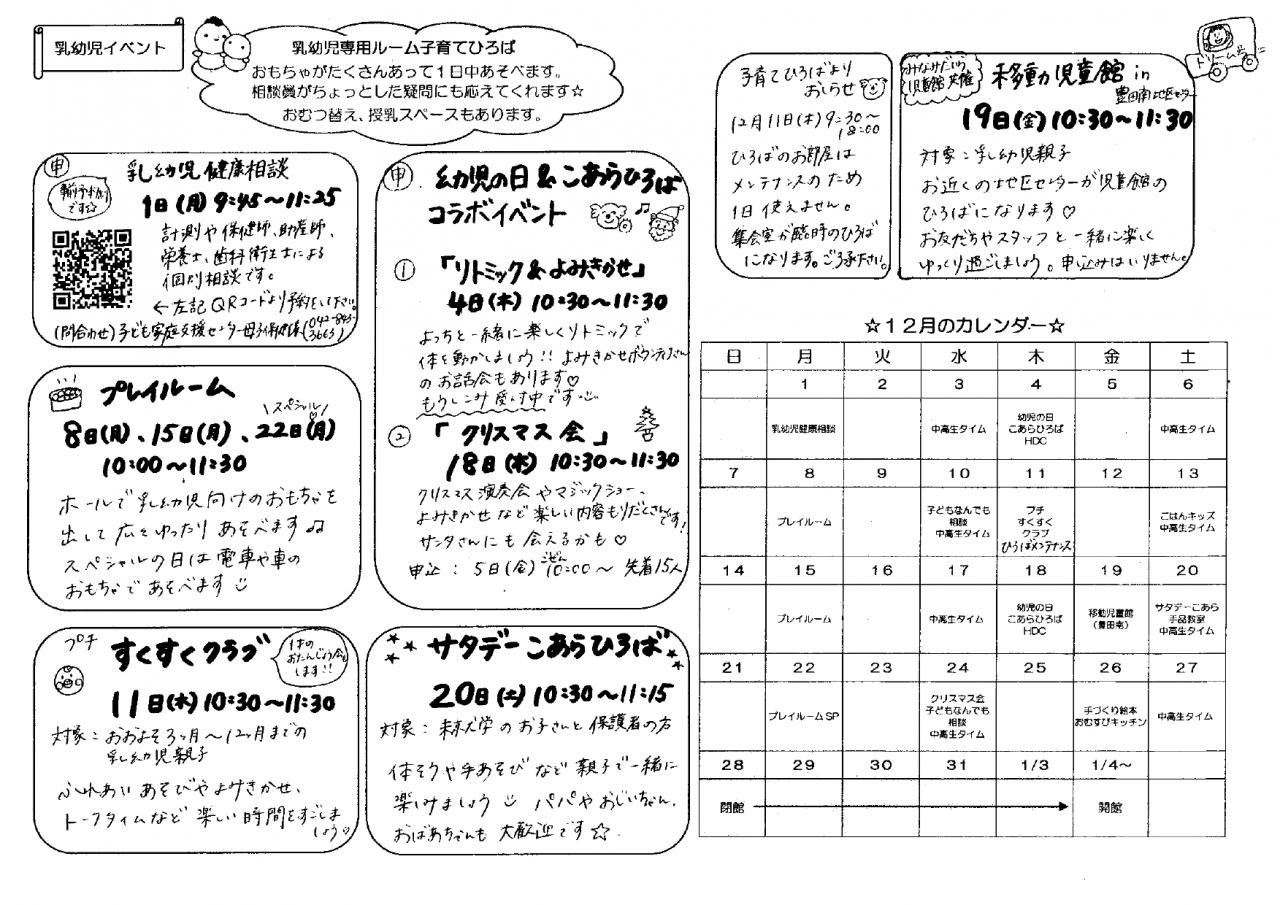 乳幼児イベント
乳幼児専用ルーム子育てひろば
おもちゃがたくさんあって１日中あそべます。
相談員がちょっとした疑問にも応えてくれます☆
おむつ替え、授乳スペースもあります。
申
乳幼児健康相談
新予約制
です☆
1日(月) 9:45～11:25
計測や保健師、助産師、
栄養士、歯科衛生士による
個別相談です。
←左記QRコードより予約をして下さい。
(問合わせ)子ども家庭支援センター母子保健係(042-843-
3663)
プレイルーム
\スペシャル/
8日(月)、15日(月)、22日(月)
10:00～11:30
ホールで乳幼児向けのおもちゃを
出して広くゆったりあそべます♫
スペシャルの日は電車や車の
おもちゃであそべます
プチ
すくすくクラブ
1才の
おたんじょう会も
します!!
11日(木) 10:30～11:30
対象：おおよそ3ヶ月～12ヶ月までの
乳幼児親子
ふれあいあそびやよみきかせ、
トークタイムなど楽しい時間をすごしま
しょう♡
申
幼児の日&こあらひろば
コラボイベント
① 「リトミック&よみきかせ」
4日(木) 10:30～11:30
よっちと一緒に楽しくリトミックで
体を動かしましょう!! よみきかせボランティアさん
のお話会もあります♡
もうしこみ受付中です
② 「クリスマス会」
18日(木) 10:30～11:30
クリスマス演奏会やマジックショー、
よみきかせなど楽しい内容もりだくさんです!
サンタさんにも会えるかも♡
申込：5日(金)ごぜん10:00～ 先着15人
サタデーこあらひろば
20日(土) 10:30～11:15
対象：未就学のお子さんと保護者の方
体そうや手あそびなど親子で一緒に
楽しみましょう パパやおじいちゃん、
おばあちゃんも大歓迎です☆
子育てひろばより
おしらせ
12月11日(木) 9:30～
18:00
ひろばのお部屋は
メンテナンスのため
1日使えません。
集会室が臨時のひろば
になります。ご了承下さい。
みなみだいら
児童館共催
移動児童館 in
豊田南地区センター
ドリーム号
19日(金) 10:30～11:30
対象：乳幼児親子
お近くの地区センターが児童館の
ひろばになります♡
お友だちやスタッフと一緒に楽しく
ゆっくり過ごしましょう。申込みはいりません。
☆１２月のカレンダー☆
日 月 火 水 木 金 土
1 2 3 4 5 6
乳幼児健康相談
中高生タイム
幼児の日
こあらひろば
HDC
中高生タイム
7 8 9 10 11 12 13
プレイルーム
子どもなんでも
相談
中高生タイム
プチ
すくすく
クラブ
ひろばメンテナンス
ごはんキッズ
中高生タイム
14 15 16 17 18 19 20
プレイルーム
中高生タイム
幼児の日
こあらひろば
HDC
移動児童館
(豊田南)
サタデーこあら
手品教室
中高生タイム
21 22 23 24 25 26 27
プレイルームSP
クリスマス会
子どもなんでも
相談
中高生タイム
手づくり絵本
おむすびキッチン
中高生タイム
28 29 30 31 1/3 1/4～
閉館
開館